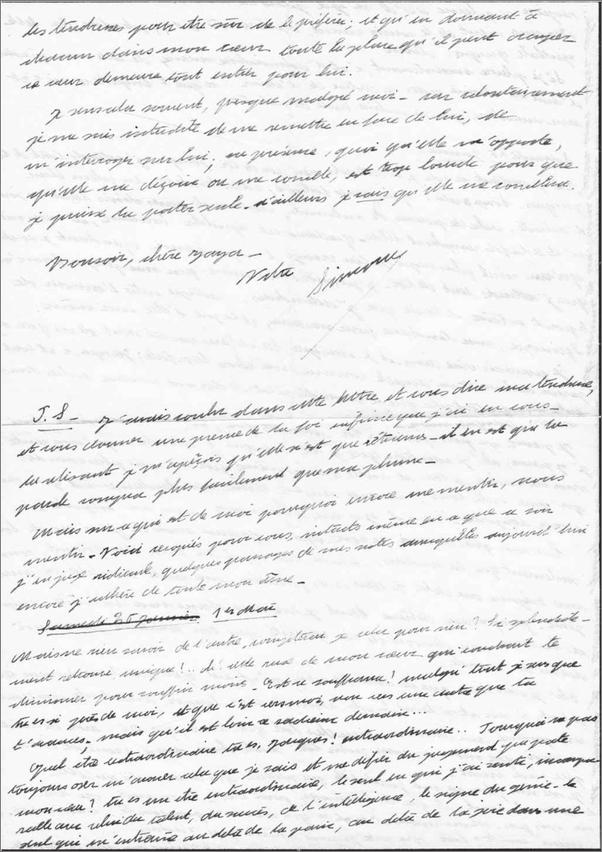 les tendresses pour être sûr de le préférer; et qu'en donnant à
chacun dans mon cœur toute la place qu'il peut occuper
ce cœur demeure tout entier pour lui.
Je sens cela souvent, presque malgré moi - car volontairement
je me suis interdite de me remettre en face de lui, de
m'interroger sur lui; sa présence, quoi qu'elle m'apporte,
qu'elle me déçoive ou me comble, est trop lourde pour que
je puisse la porter seule. d'ailleurs je sais qu'elle me comblera.
Bonsoir, chère Zaza -
Votre Simone
P.S - J'avais voulu dans cette lettre, et vous dire ma tendresse,
et vous donner une preuve de la foi infinie que j'ai en vous -
relisant je m'aperçois qu'elle n'est que - il en est que la
parole conquer plus facilement que ma plume -
Mais sur ce qui est de moi pourquoi encore me mentir, vous
mentir - Voici recopiés pour vous, intacts même en ce que ce soir
j'en juge ridicule, quelques passages de mes notes auxquelles aujourd'hui
encore j'adhère de toute mon âme -
Samedi 1er Mai
Mais ne rien savoir de l'autre, compterai-je cela pour rien? Si splendide-
ment retrouvé, unique!.. à cette ruse de mon cœur qui voudrait te
diminuer pour souffrir moins - Est-ce souffrance? malgré tout je sens que
tu es si près de moi, et que c'est vers moi, non vers une autre que tu
t'avances, mais qu'il est loin ce prochain demain...
Quel être extraordinaire tu es, Jacques! extraordinaire.. Pourquoi ne pas
toujours oser m'avouer cela que je sais et me défier du jugement que porte
mon cœur? tu es un être extraordinaire, le seul en qui j'ai senti, irréduc
celle au talent, du succès, de l'intelligence, le signe du génie - le
seul qui m'entraîne au delà de la paix, au delà de la joie dans une